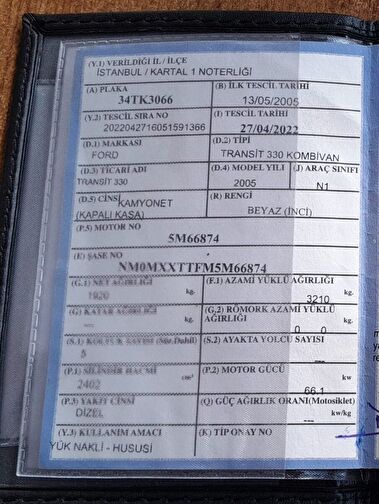 (Y.1) VERİLDİĞİ İL / İLÇE
İSTANBUL / KARTAL 1 NOTERLİĞİ
(A) PLAKA
34TK3066
(B) İLK TESCİL TARİHİ
13/05/2005
(Y.2) TESCİL SIRA NO
2022042716051591366
(I) TESCİL TARİHİ
27/04/2022
(D.1) MARKASI
FORD
(D.2) TİPİ
TRANSİT 330 KOMBİVAN
(D.3) TİCARİ ADI
TRANSİT 330
(D.4) MODEL YILI
2005
(J) ARAÇ SINIFI
N1
(D.5) CİNS
KAMYONET
(KAPALI KASA)
(R) RENGİ
BEYAZ (İNCİ)
(P.5) MOTOR NO
5M66874
(E) ŞASE NO
NM0MXXTTFM5M66874
(G.1) NET AĞIRLIĞI
1920 kg.
(F.1) AZAMİ YÜKLÜ AĞIRLIĞI
3210 kg.
(G) KATAR AĞIRLIĞI
--- kg.
(G,2) RÖMORK AZAMİ YÜKLÜ
AĞIRLIĞI
0 0 kg.
(S.1) KOLTUK SAYISI (Sür.Dahil)
5
(S.2) AYAKTA YOLCU SAYISI
---
(P.1) SİLİNDİR HACMİ
2402 cm³
(P.2) MOTOR GÜCÜ
66.1 kw
(P.3) YAKIT CİNSİ
DİZEL
(Q) GÜÇ AĞIRLIK ORANI(Motosiklet)
--- kw/kg
(Y.3) KULLANIM AMACI
YÜK NAKLİ - HUSUSİ
(K) TİP ONAY NO